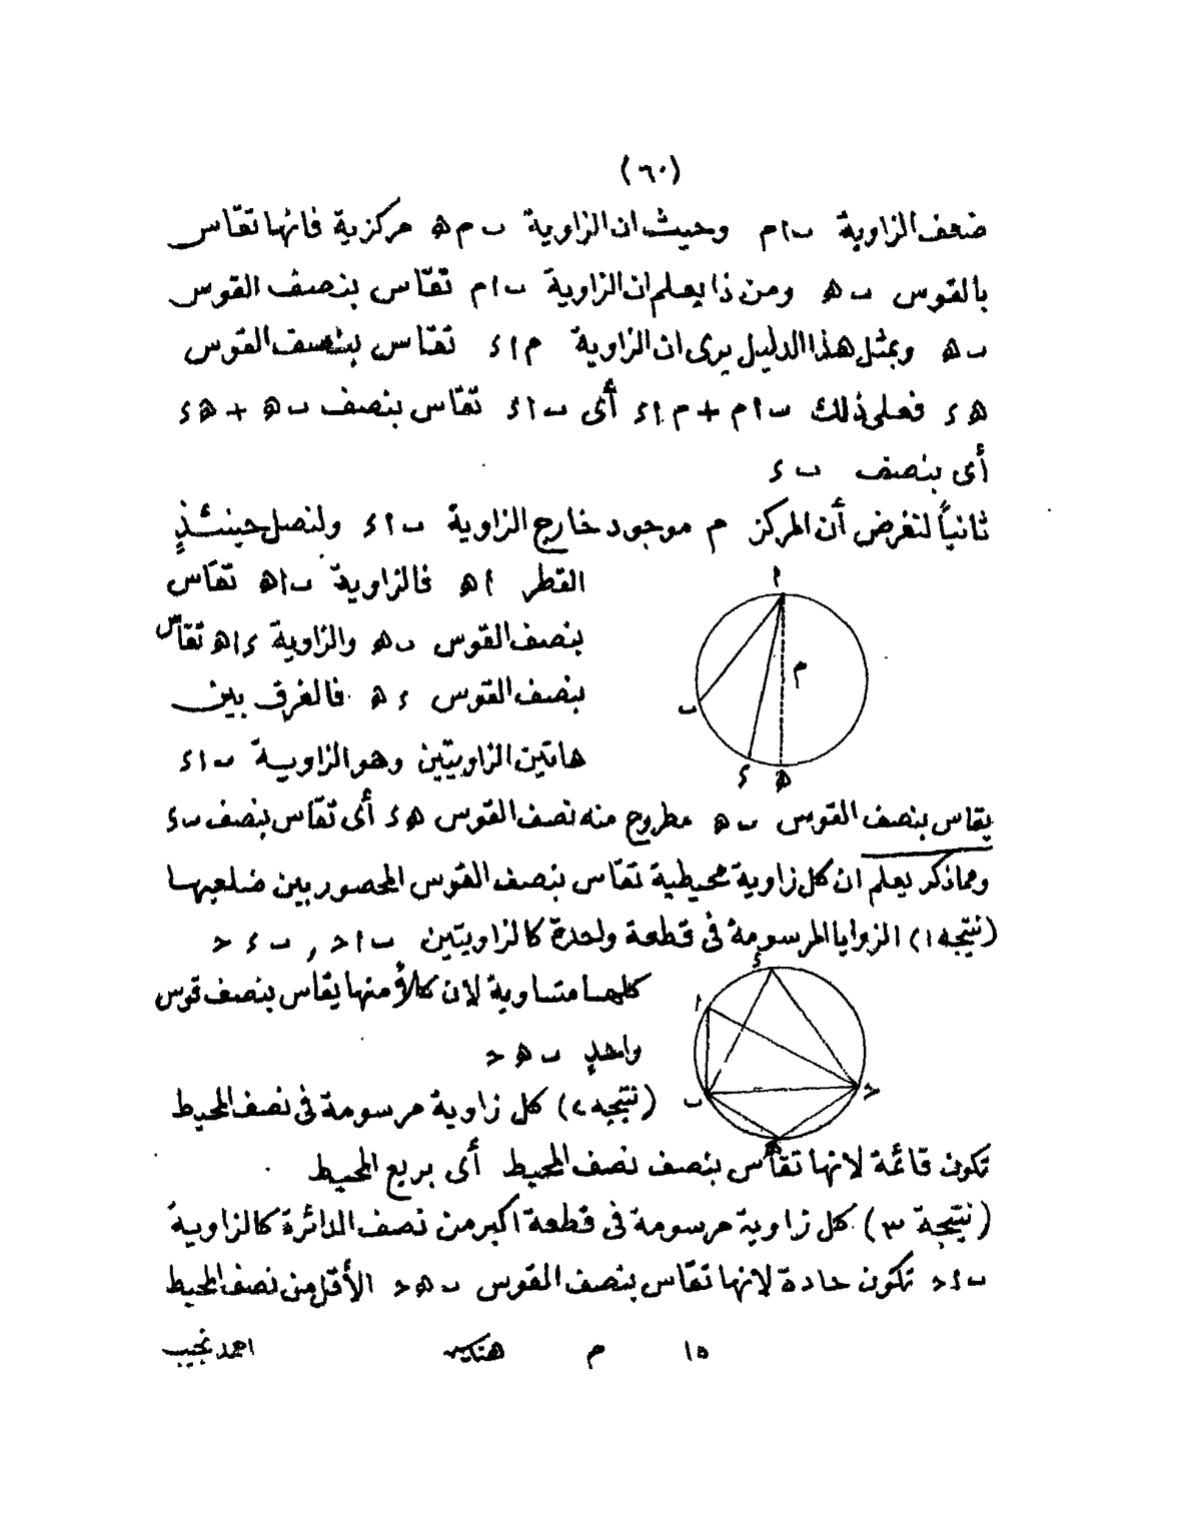 (٦٠)
ضعف الزاوية ب ا م وحيث ان الزاوية ب م ه مركزية فانها تقاس
بالقوس ب ه ومن ذا يعلم ان الزاوية ب ا م تقاس بنصف القوس
ب ه وبمثل هذا الدليل يرى ان الزاوية م ا ء تقاس بنصف القوس
ه ء فعلى ذلك ب ا م + م ا ء أى ب ا ء تقاس بنصف ب ه + ه ء
أى بنصف ب ء
ثانياً لنفرض أن المركز م موجود خارج الزاوية ب ا ء ولنصل حينئذٍ
القطر ا ه فالزاوية ب ا ه تقاس
بنصف القوس ب ه والزاوية ء ا ه تقاس
بنصف القوس ء ه فالفرق بين
هاتين الزاويتين وهو الزاوية ب ا ء
ا
م
ب
ء ه
يقاس بنصف القوس ب ه مطروح منه نصف القوس ه ء أى تقاس بنصف ب ء
ومماذكر يعلم ان كل زاوية محيطية تقاس بنصف القوس المحصور بين ضلعيها
(نتيجه ١) الزوايا المرسومة فى قطعة واحدة كالزاويتين ب ا ح , ب ء ح
كلها متساوية لان كلاً منها يقاس بنصف قوس
واحدٍ ب ه ح
ء
ا
ب
ح
ه
(نتيجه ٢) كل زاوية مرسومة فى نصف المحيط
تكون قائمة لانها تقاس بنصف نصف المحيط أى بربع المحيط
(نتيجة ٣) كل زاوية مرسومة فى قطعة أكبر من نصف الدائرة كالزاوية
ب ء ح تكون حادة لانها تقاس بنصف القوس ب ه ح الأقل من نصف المحيط
١٥ م هندسه احمد نجيب